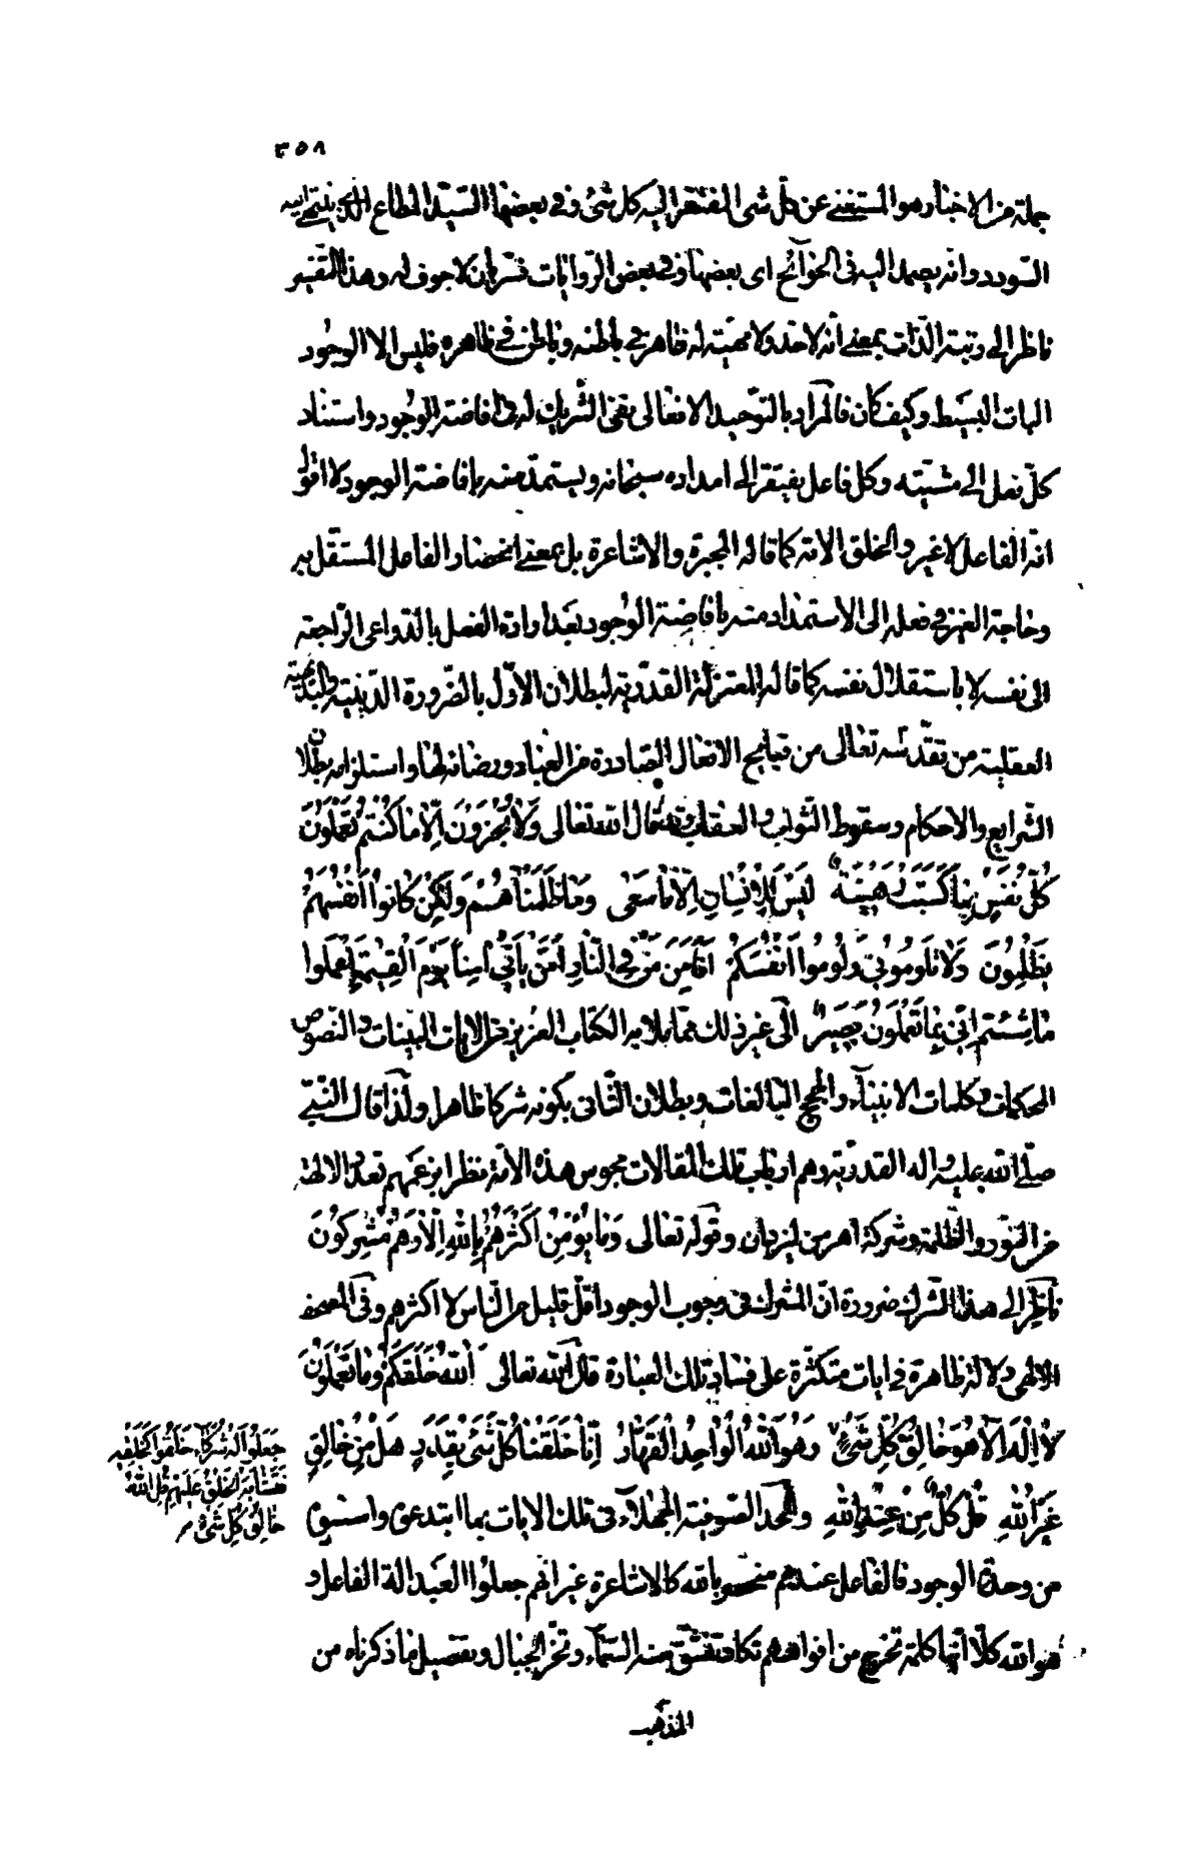 ٣٥٨
جملة من الاخبار هو المستغنى عن كل شئ المفتقر اليه كل شئ وفى بعضها السيّد المطاع الذى ينتهى اليه
السّودد وانه يصمد اليه فى الحوآئج اى بعضها وفى بعض الرّوايات فسّر بان لاجوف له وهذا التفسير
ناظر الى رتبة الذّات بمعنى انّه لاحدّ ولا مهيّة له فظاهر فى باطنه وباطن فى ظاهره فليس الا الوجُود
البات البسيط وكيف كان فالمراد بالتوحيد الافعالى نفى الشريك له فى افاضة الوجُود واستناد
كلّ فعل الى مشيّته وكل فاعل يفتقر الى امداده سبحانه ويستمدّ منه بافاضة الوجود لا اقول
انّه الفاعل لا غير والخلق الآته كما قاله المجبرة والاشاعرة بل بمعنى انحصار الفاعل المستقل به
وحاجة الغير فى فعله الى الاستمداد منه بافاضة الوجُود بعد ارادة الفعل بالدّواعى الرّاجعة
الى نفسه لا باستقلال نفسه كما قاله المعتزلة القدريّة لبطلان الاوّل بالضّرورة الدّينيّة والبديهيّة
العقليّة من تقدّسه تعالى من قبايح الافعال الصّادرة من العباد ورضائه لها واستلزامه بطلان
الشرايع والاحكام وسقوط الثّواب والعقاب وقد قال الله تعالى وَلا تُجْزَوْنَ اِلّا ما كُنْتُمْ تَعْمَلُونَ
كُلُّ نَفْسٍ بِما كَسَبَتْ رَهينَةٌ لَيْسَ لِلْاِنْسانِ اِلّا ما سَعى وَما ظَلَمْناهُمْ وَلكِنْ كانُوا اَنْفُسَهُمْ
يَظْلِمُونَ فَلا تَلُومُونى وَلُومُوا اَنْفُسَكُمْ اَفَمَنْ فى النّارِ اَمَّنْ يَأتى امِناً يَوْمَ الْقِيمَةِ اِعْمَلُوا
ما شِئْتُمْ اِنّى بِما تَعْمَلُونَ بَصيرٌ الى غير ذلك ممّا يلايه الكتاب العزيز من الايات البيّنات والنّصوص
المحكمات وكلمات الانبيآء والحجج البالغات وبطلان الثّانى بكونه شركا ظاهرا ولذا قال النبىّ
صلّى الله عليه واله القدريّة وهم ارباب تلك المقالات مجوس هذه الامّة نظرا بزعمهم تعدّد الالهة
من النّور والظّلمة وشركة اهرمن ليزدان وقوله تعالى وَما يُؤْمِنُ اَكْثَرُهُمْ بِاللهِ اِلّا وَهُمْ مُشْرِكُونَ
ناظر الى هذا الشّرك ضرورة انّ المشرك فى وجوب الوجود اقلّ قليل من النّاس لا اكثرهم وفى المصحف
الالهى دلالة ظاهرة فى ايات متكثّرة على فساد تلك العبادة قال الله تعالى اَللهُ خَلَقَكُمْ وَما تَعْمَلُونَ
لا اِلهَ اِلّا هُوَ خالِقُ كُلِّ شَىْءٍ وَهُوَ اللهُ الْواحِدُ الْقَهّارُ اِنّا خَلَقْنا كُلَّ شَىْءٍ بِقَدَرٍ هَلْ مِنْ خالِقٍ
جَعَلُوا لَهُ شُرَكآءَ خَلَقُوا كَخَلْقِهِ
فَتَشابَهَ الْخَلْقُ عَلَيْهِمْ قُلِ اللهُ
خالِقُ كُلِّ شَىْءٍ
غَيْرُ اللهِ قُلْ كُلٌّ مِنْ عِنْدِ اللهِ والحد الصّوفيّة الجهلآء فى تلك الايات بما ابتدعوا
من وحدة الوجود فالفاعل عندهم بالله كالاشاعرة غير انّهم جعلوا العبد الة الفاعل و
هو الله كلّا انّها كلمة تخرج من افواههم تكاد تنشقّ منه السّمآء وتخرّ الجبال وتفصيل ما ذكرناه من
المذهب